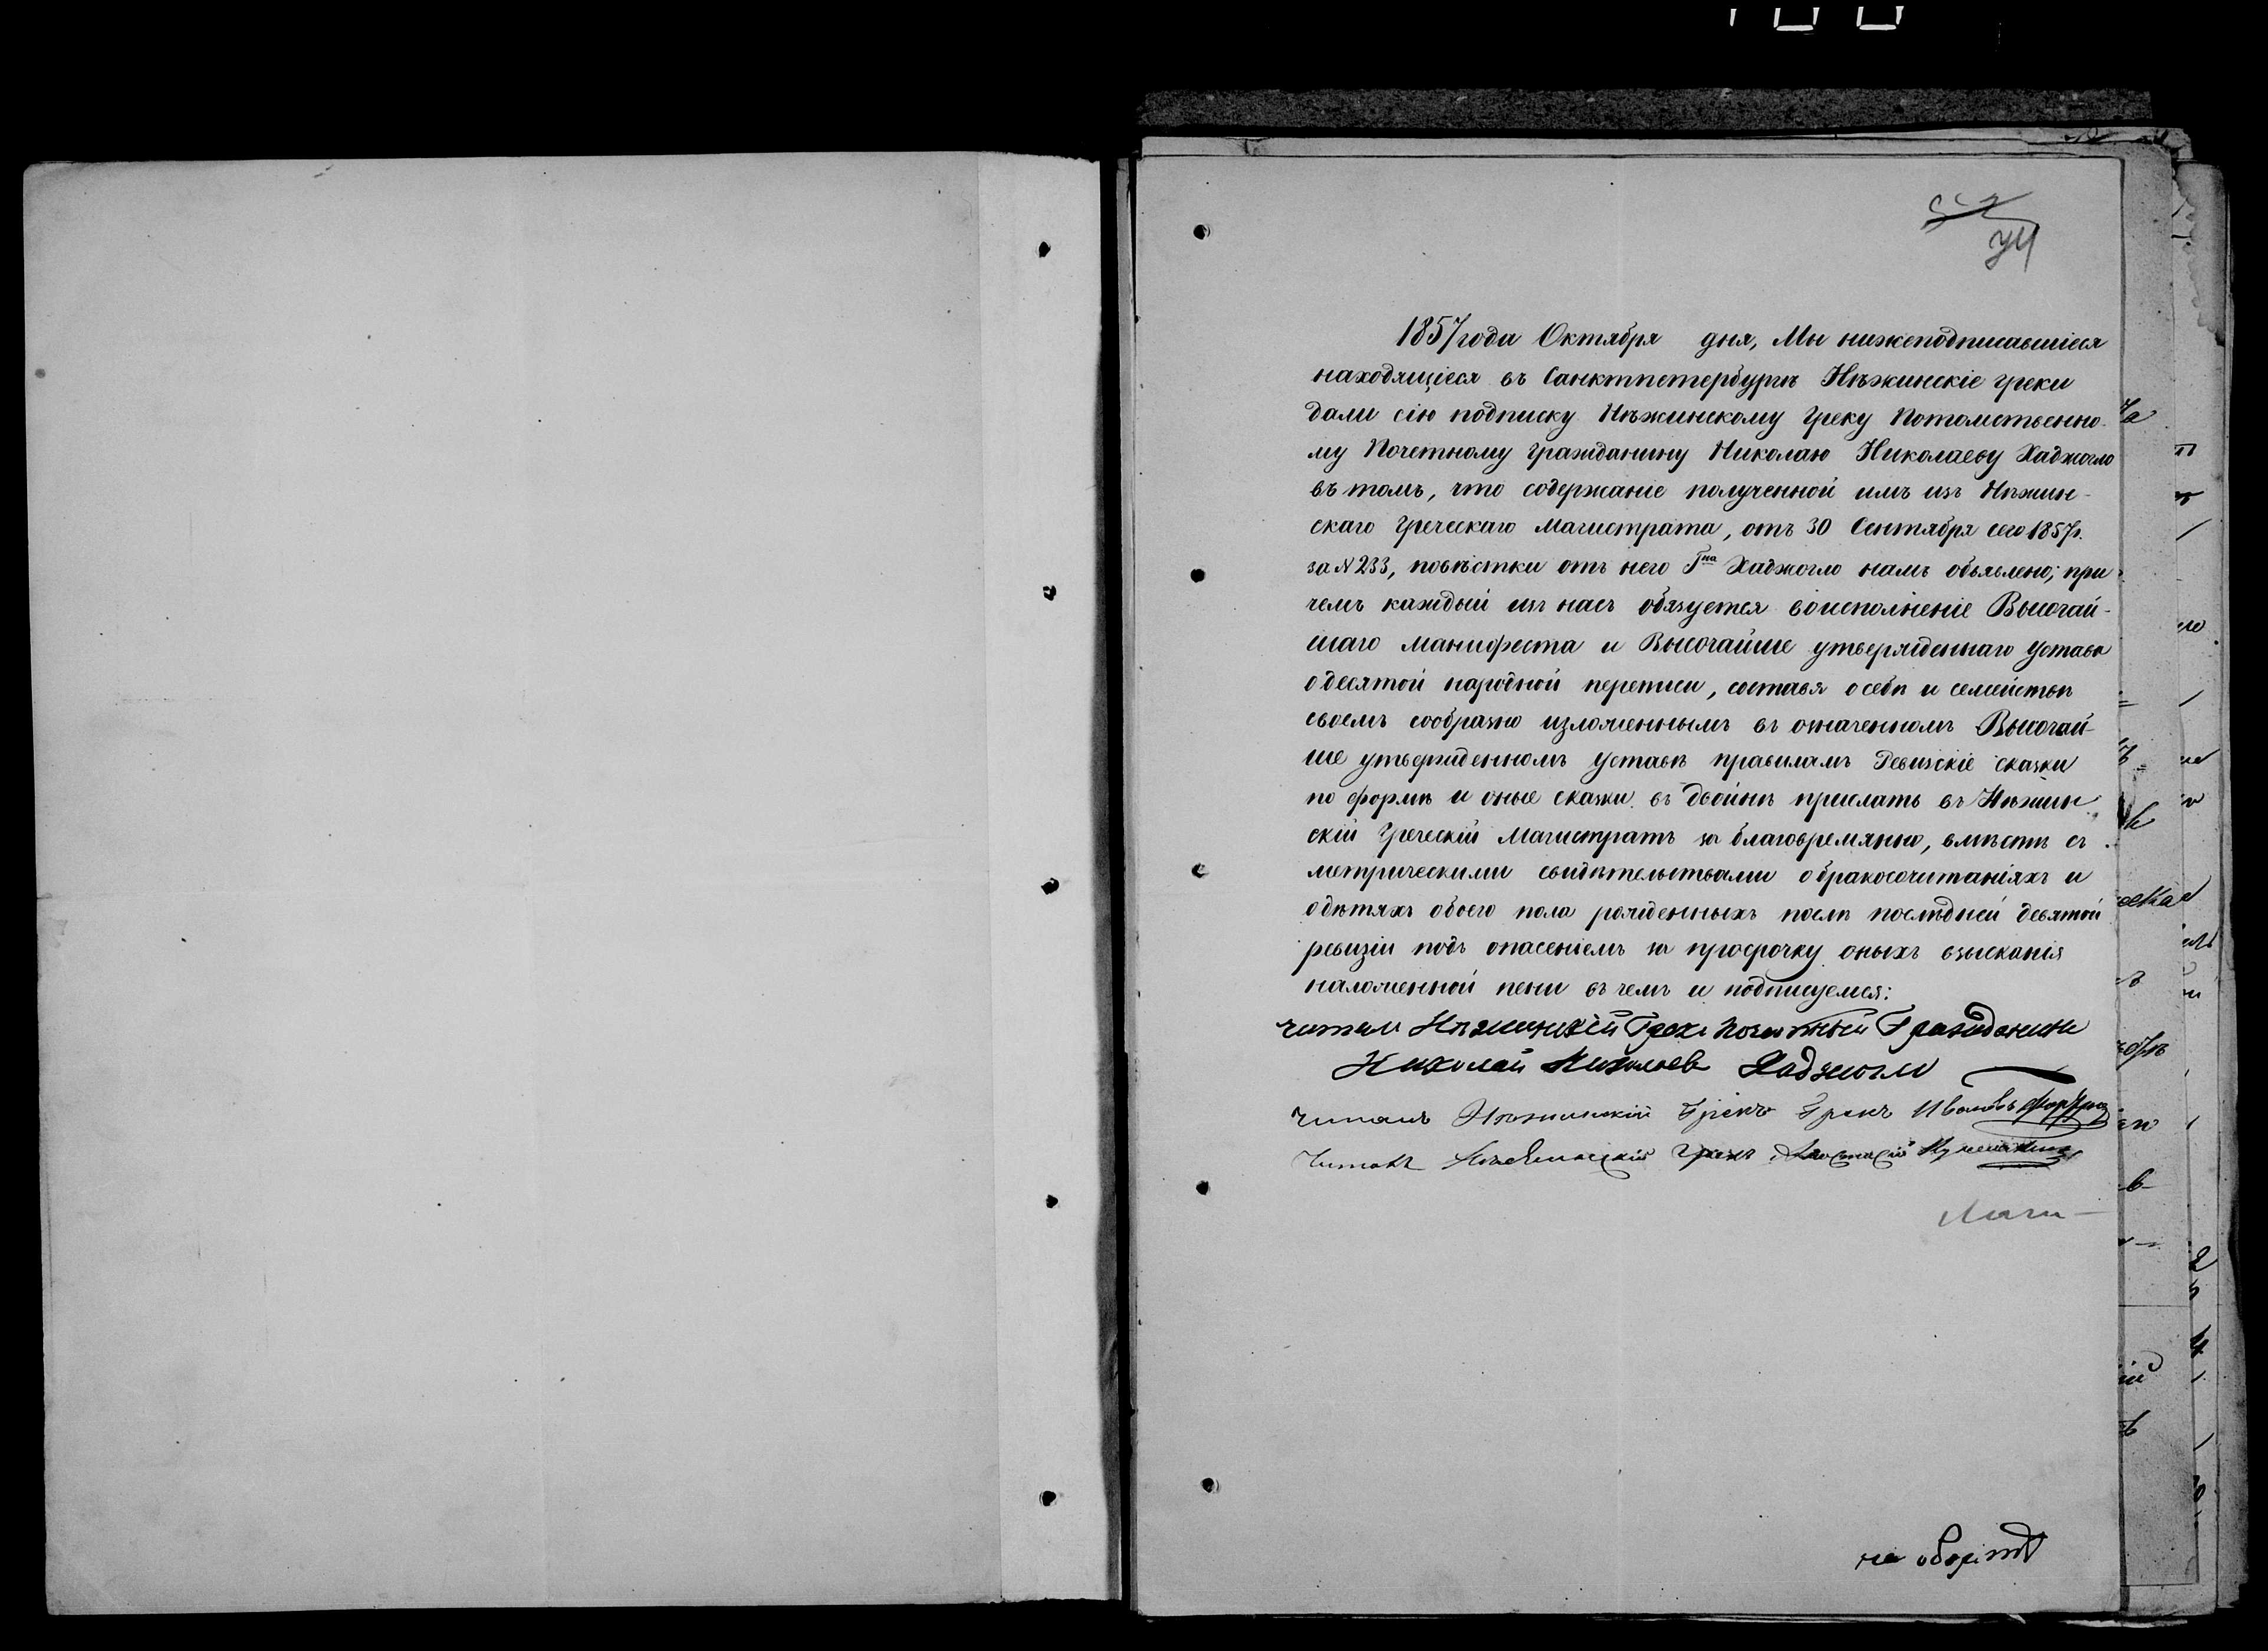 74
1857 года Октября дня, Мы нижеподписавшіеся
находящіеся въ Санктпетербургѣ Нѣжинскіе греки
дали сію подписку Нѣжинскому греку Потомственно-
му Почетному гражданину Николаю Николаеву Хаджогло
въ томъ, что содержаніе полученной имъ изъ Нѣжин-
скаго греческаго магистрата, отъ 30 Сентября сего 1857 г.
за №233, повѣстки отъ него Гна Хаджогло намъ объявлено; при
чемъ каждый изъ насъ обязуется во исполненіе Высочай-
шаго манифеста и Высочайше утвержденнаго устава
о десятой народной переписи, составя о себѣ и семействѣ
своемъ сообразно изложеннымъ въ означенномъ Высочай-
ше утвержденномъ уставѣ правиламъ Ревизскіе сказки
по формѣ и оные сказки въ двойнѣ прислать въ Нѣжин-
скій греческій Магистратъ заблаговремянно, вмѣстѣ съ
метрическими свидѣтельствами о бракосочитаніяхъ и
о дѣтяхъ обоего пола рожденныхъ послѣ послѣдней девятой
ревизіи подъ опасеніемъ за просрочку оныхъ взысканія
наложенной пени въ чемъ и подписуемся:
читал Нѣжинскій Грекъ Почетный Гражданинъ
Николай Николаевъ Хаджогло
Читалъ Нѣжинскій Грекъ
Читалъ Нѣжинскій Грекъ
на оборотѣ